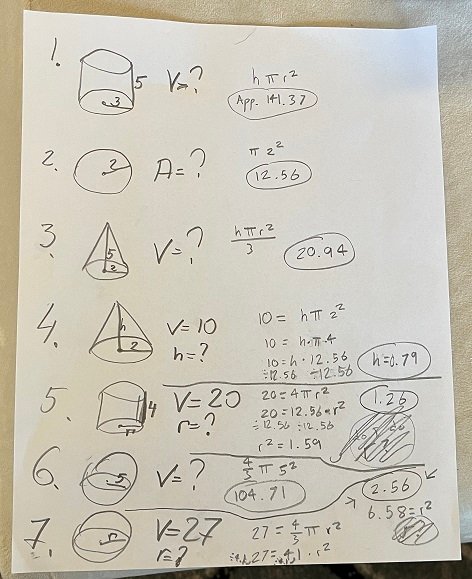 1. 5 3 V=? hπr²
App. 141.37
2. 2 A=? π2²
12.56
3. 5 2 V=? hπr²/3 20.94
4. h 2 V=10 10 = hπ2²
h=? 10 = h·π·4
10=h·12.56 h=0.79
÷12.56 ÷12.56
5. 4 r V=20 20=4πr² 1.26
r=? 20=12.56·r²
÷12.56 ÷12.56
r²=1.59
6. 5 V=? 4/3 π 5²
104.71 2.56
6.58=r²
7. r V=27 27 = 4/3 π r²
r=? 27= 4.1·r²